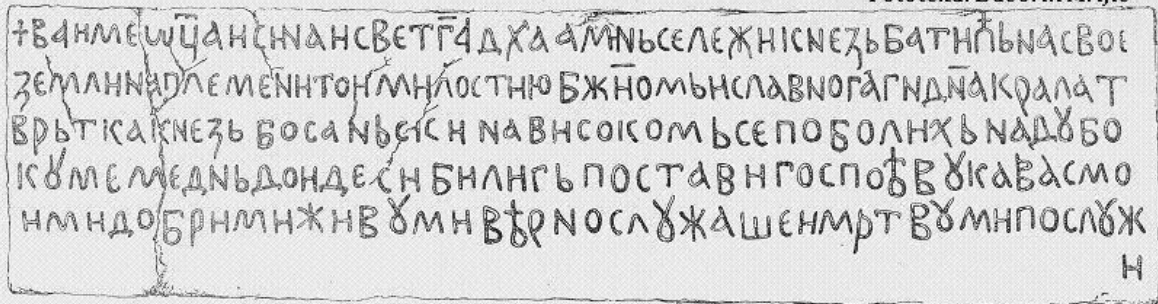 +ВАНМЕѠЦ҃АНСНNАНСВЕТГ҃АДХ҃ААМН҃ЬСЕЛЕЖНКNЕЗЬБАТНЋЬNАСВОЕ
ЗЕМЛННАПЛЕМЕNНТОНМНЛОСТНЮБЖН҃ОМЬНСЛАВNОГАГНДN҃АКРАЛАТ
ВРЬТКАКNЕЗЬБОСАNЬСКНNАВНСОКОМЬСЕПОБОЛНХЬNАДꙊБО
КꙊМЕМЕДNЬДОНДЕСНБНЛНГЬПОСТАВНГОСПОѢВꙊКАВАСМО
НМНДОБРНМНЖНВꙊМНВѢРNОСЛꙊЖАШЕНМРТВꙊМНПОСЛꙊЖ
Н